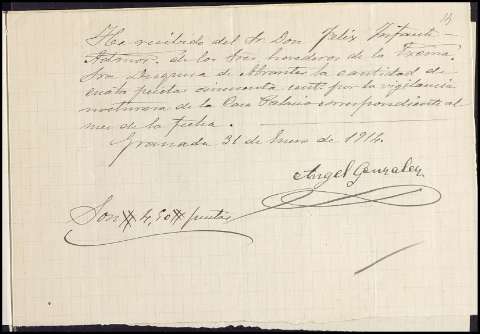 He recibido del Sr. Don Felix Infante
Admor. de los Sres herederos de la Excma.
Sra Duquesa de Abrantes la cantidad de
cuatro pesetas cincuenta cents por la vigilancia
nocturna de la Casa Palacio correspondiente al
mes de la fecha.
Granada 31 de Enero de 1914.
Angel Gonzalez
Son # 4,50 # pesetas